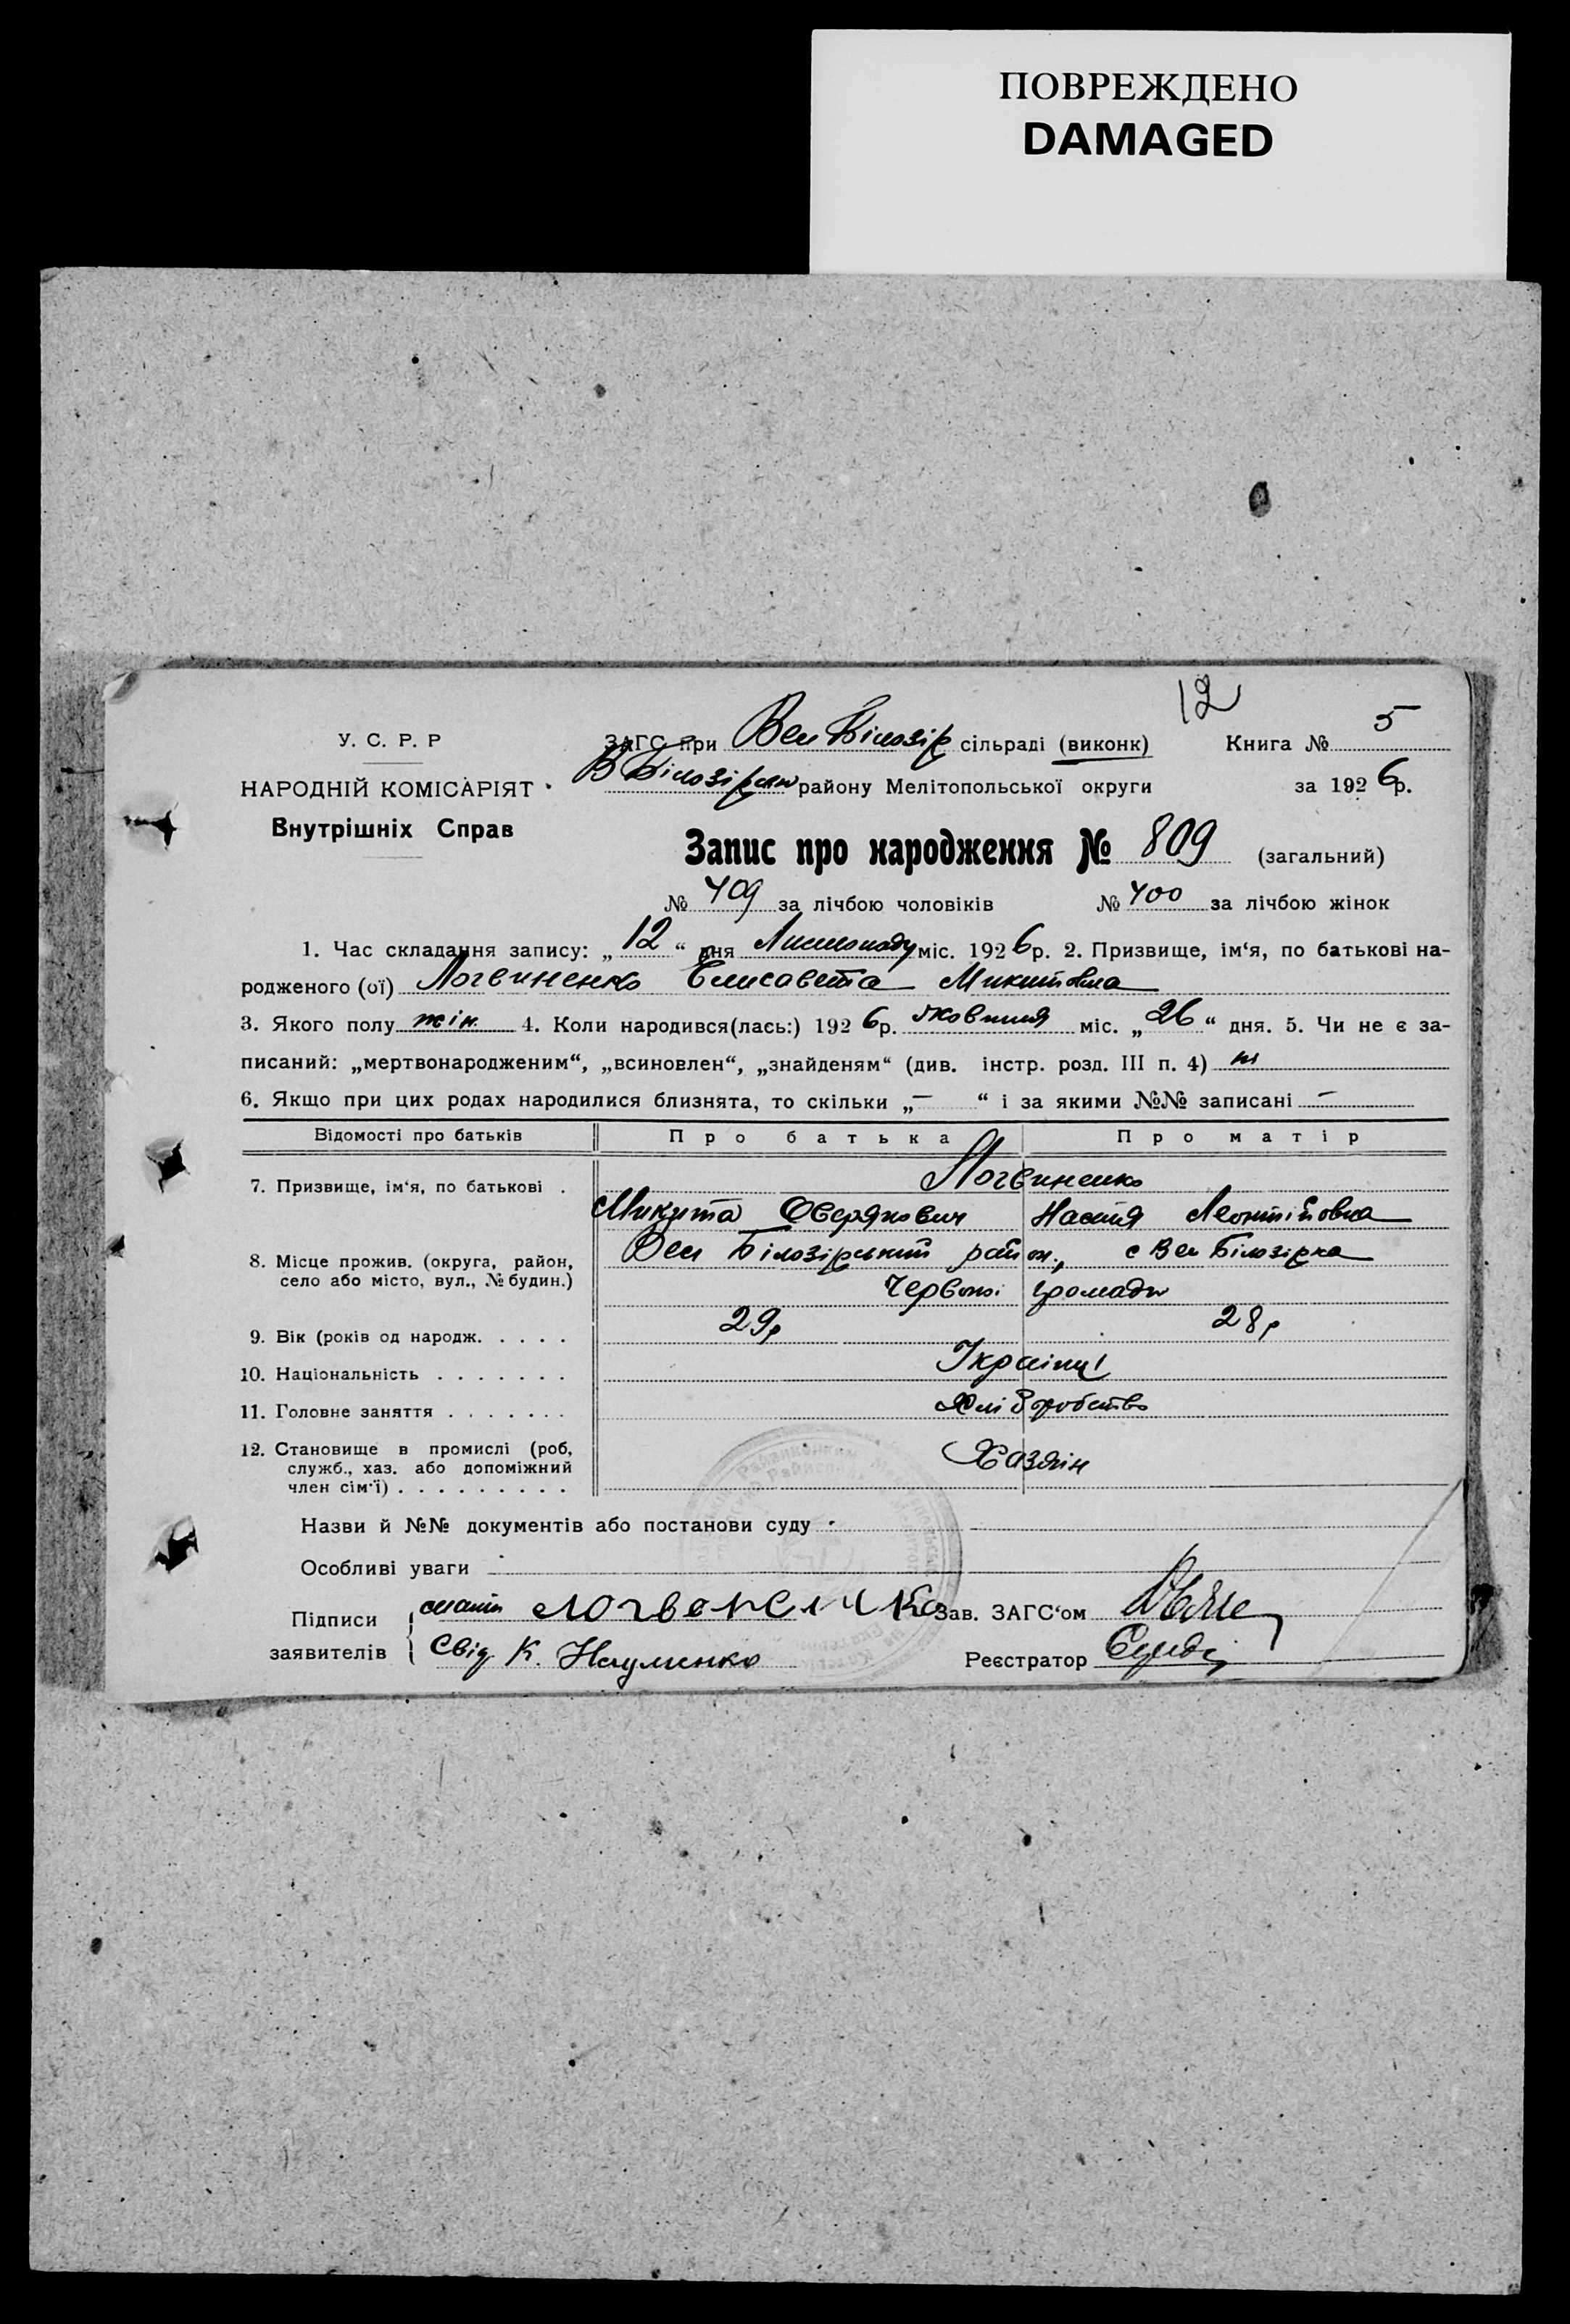 ПОВРЕЖДЕНО
DAMAGED
12
У. С. Р. Р
НАРОДНІЙ КОМІСАРІЯТ
Внутрішніх Справ
ЗАГС при Вел Білозір сільраді (виконк)
Книга № 5
В Білозірськ району Мелітопольської округи
за 1926р.
Запис про народження № 809 (загальний)
№ 409 за лічбою чоловіків № 400 за лічбою жінок
1. Час складання запису: „12“ дня Листопаду міс. 1926р. 2. Призвище, ім‘я, по батькові на-
родженого (ої) Логвиненко Елисавета Микитовна
3. Якого полу жін. 4. Коли народився(лась:) 1926р. жовтня міс. „26“ дня. 5. Чи не є за-
писаний: „мертвонародженим“, „всиновлен“, „знайденям“ (див. інстр. розд. III п. 4) ні
6. Якщо при цих родах народилися близнята, то скільки „—“ і за якими №№ записані —
Відомості про батьків Про батька Про матір
7. Призвище, ім‘я, по батькові . Логвиненко
Микита Оверянович Настя Леонтіївна
8. Місце прожив. (округа, район, село або місто, вул., № будин.) Вел Білозірський район, с Вел Білозірка
Червоної громади
9. Вік (років од народж. . . . . 29р 28р
10. Національність . . . . . . . Українці
11. Головне заняття . . . . . . . Хліборобство
12. Становище в промислі (роб, служб., хаз. або допоміжний член сім‘ї) . . . . . . . . . Хазяїн
Назви й №№ документів або постанови суду
Особливі уваги
Підписи заявителів
мати
Зав. ЗАГС‘ом
Свід К. Науменко
Реєстратор